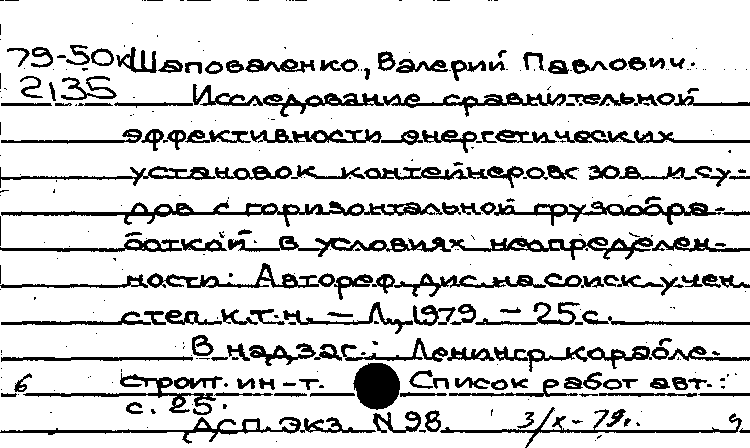 79-50к Шаповаленко, Валерий Павлович.
2135 Исследование сравнительной
эффективности энергетических
установок контейнеровозов и су-
дов с горизонтальной грузообра-
боткой в условиях неопределен-
ности: Автореф. дис. на соиск. учен.
степ. к.т.н. — Л., 1979. — 25 с.
В надзаг.: Ленингр. корабле-
6 строит. ин-т. Список работ авт.:
с. 25.
Дсп. Экз. N 98. 3/X-79г.